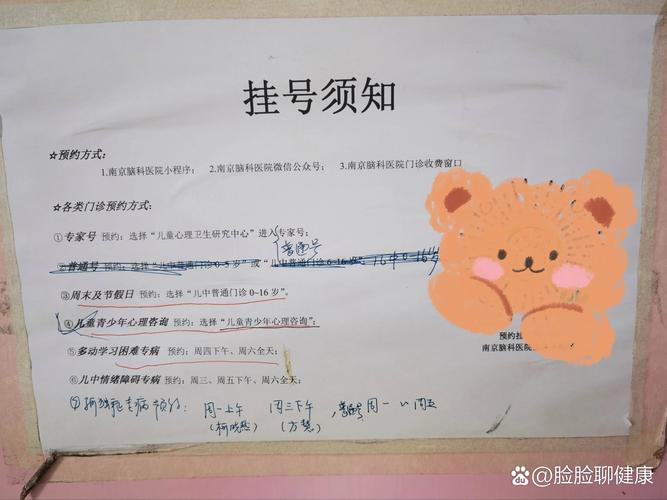 挂号须知
☆预约方式：
1.南京脑科医院小程序； 2.南京脑科医院微信公众号； 3.南京脑科医院门诊收费窗口
☆各类门诊预约方式：
①专家号 预约：选择“儿童心理卫生研究中心”进入专家号；
普通号
②普通号 预约：选择“儿中普通门诊0-5岁”或“儿中普通门诊6-16岁”；
③周末及节假日 预约：选择“儿中普通门诊0~16岁”。
④儿童青少年心理咨询 预约：选择“儿童青少年心理咨询”；
⑤多动学习困难专病 预约：周四下午、周六全天；
⑥儿中情绪障碍专病 预约：周三、周五下午、周六全天；
⑦孤独症专病预约： 周一上午 周三下午 普通号周一～周五
(方慧)
预约挂
南京脑科医院
脸脸聊健康